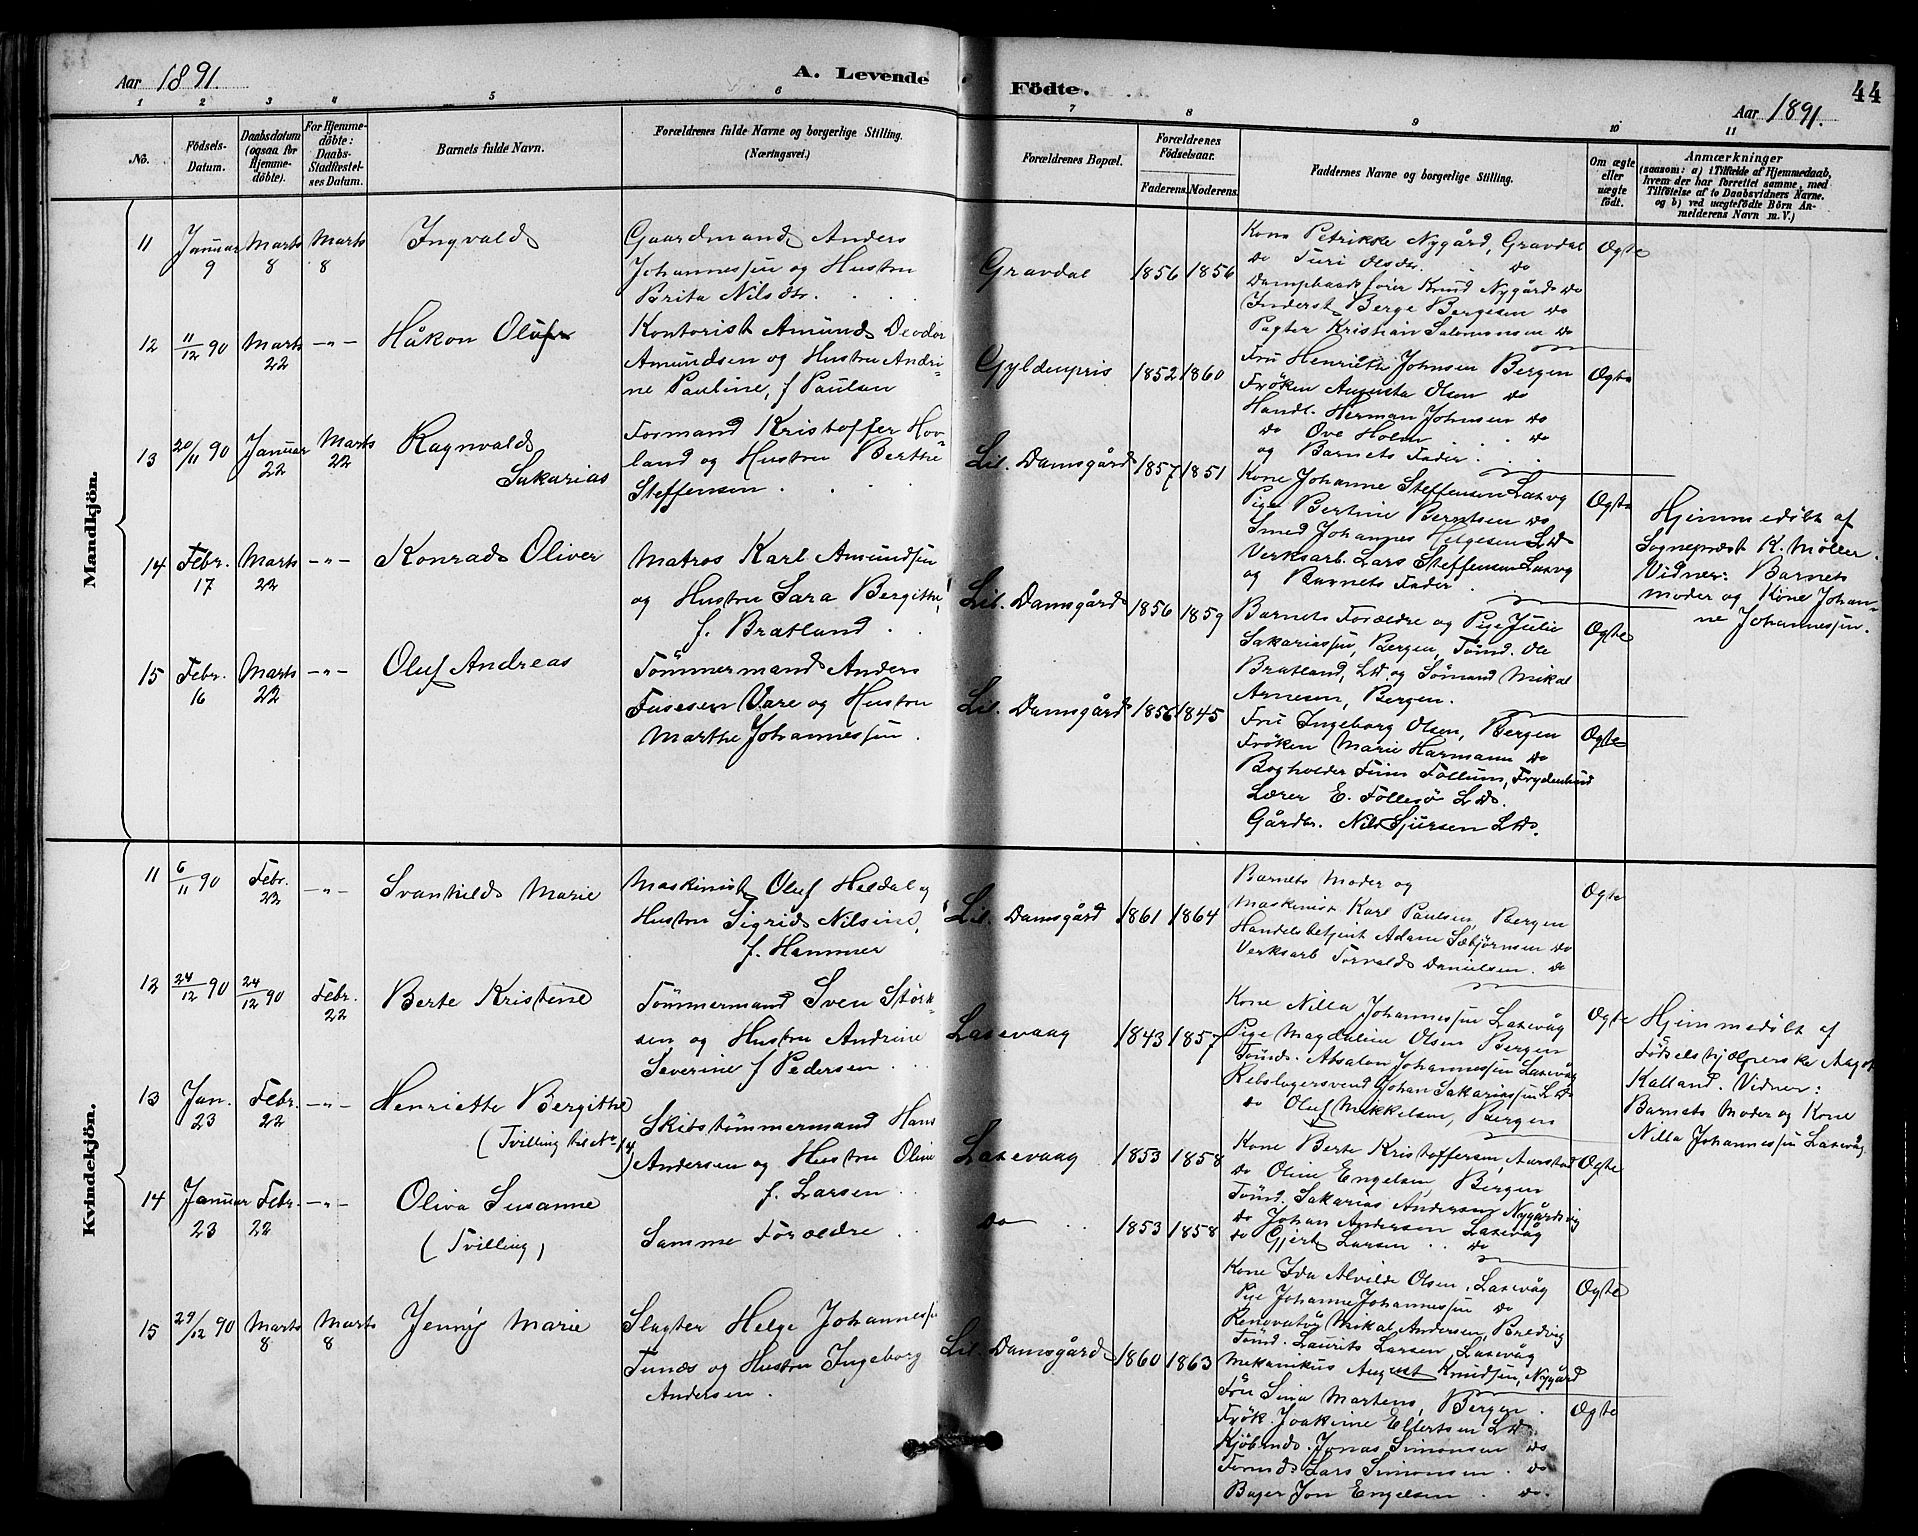 Aar 1891.
A. Levende Födte.
44
Aar 1891.
1 2 3 4 5 6 7 8 9 10 11
No.
Födsels-Datum.
Daabsdatum (ogsaa for Hjemmedöbte).
For Hjemmedöbte: Daabs-Stadfæstelses Datum.
Barnets fulde Navn.
Forældrenes fulde Navne og borgerlige Stilling. (Næringsvei.)
Forældrenes Bopæl.
Forældrenes Födselsaar.
Faderens. Moderens.
Faddernes Navne og borgerlige Stilling.
Om ægte eller uægte födt.
Anmærkninger
(saasom: a) i Tilfælde af Hjemmedaab,
hvem der har forrettet samme, med
Tilföielse af to Daabsvidners Navne.
og b) ved uægtefödte Börn An-
melderens Navn m. V.)
Mandkjön.
11 Januar 9 Marts 8 Marts 8 Ingvald
Gaardmand Anders
Johannessen og Hustru
Brita Nilsdtr.
Gravdal 1856 1856
Kone Petrikke Nygård, Gravdal
do Turi Olsdtr. do
Dampbaadsförer Knud Nygård do
Inderst Berge Bergesen do
Pagter Kristian Salomonsen do
Ægte
12 11/12 90 Marts 22 -"- Håkon Oluf
Kontorist Amund Deodor
Amundsen og Hustru Andri-
ne Pauline, f Paulsen
Gyldenpris 1852 1860
Fru Henriette Johnsen Bergen
Fröken Augusta Olsen do
Handl. Herman Johnsen do
do Ove Holm do
og Barnets Fader.
Ægte
13 20/11 90 Januar 22 Marts 22 Ragnvald
Sakarias
Formand Kristoffer Hov-
land og Hustru Berthe
Steffensen
Lil. Damsgård 1857 1851
Kone Johanne Steffensen Laxvg
Pige Bertine Berntsen do
Smed Johannes Helgesen Ld
Verksarb. Lars Steffensen Laxvg
og Barnets Fader
Ægte
Hjemmedöbt af
Sognepræst K. Møller.
Vidner: Barnets
moder og Kone Johan-
ne Johannessen.
14 Febr. 17 Marts 22 -"- Konrad Oliver
Matros Karl Amundsen
og Hustru Sara Bergitte,
f. Bratland
Lil. Damsgård 1856 1859
Barnets Forældre og Pige Julie
Sakariassen, Bergen, Tömd. Ole
Bratland, Ld og Sömand Mikal
Arnesen, Bergen.
Ægte
15 Febr. 16 Marts 22 -"- Oluf Andreas
Tömmermand Anders
Vare og Hustru
Marthe Johannessen.
Lil. Damsgård 1856 1845
Fru Ingeborg Olsen, Bergen
Fröken Marie Harmann do
Bogholder Finn Follum, Frydenlund
Lærer E. Follesö Ld.
Gårdbr. Nils Sjursen Ld.
Ægte
Kvindekjön.
11 6/11 90 Febr. 22 -"- Svanhild Marie
Maskinist Oluf Hesdal og
Hustru Sigrid Nilsine,
f. Hammer
Lil. Damsgård 1861 1864
Barnets Moder og
Maskinist Karl Paulsen, Bergen
Handelsbetjent Adam Sæbjörnsen do
Verksarb Torvald Danielsen. do
Ægte
12 24/12 90 24/12 90 Febr. 22 Berte Kristine
Tömmermand Sven Störk-
sen og Hustru Andrine
Severine f Pedersen
Laxevaag 1843 1857
Kone Nilla Johannessen Laxevåg
Pige Magdalene Olsen Bergen
Tömdr. Absalon Johannessen Laxevåg
Rebslagersvend Johan Sakariassen Ld
do Oluf Mikkelsen, Bergen
Ægte
Hjemmedöbt af
Födselshjælperske Aagot
Kalland. Vidner:
Barnets Moder og Kone
Nilla Johannessen Laxevåg
13 Jan. 23 Febr. 22 -"- Henriette Bergitte
(Tvilling til No 14)
Skibstömmermand Hans
Andersen og Hustru Oline
f. Larsen
Laxevaag 1853 1858
Kone Berte Kristoffersen, Aarstad
do Oline Engelsen, Bergen
Tömd. Sakarias Andersen Nygårdsvig
do Johan Andersen Laxevåg
do Gjert Larsen do
Ægte
14 Januar 23 Febr. 22 -"- Oliva Susanne
(Tvilling)
Samme Forældre
do 1853 1858
Kone Ida Alvilde Olsen, Laxevåg
Pige Johanne Johannessen do
Renovatör Mikal Andersen Bredvig
Tömd. Laurits Larsen, Laxevåg
Mekanikus August Knudsen, Nygård
Ægte
15 29/12 90 Marts 8 Marts 8 Jenny Marie
Slagter Helge Johannessen
Tunæs og Hustru Ingeborg
Andersen.
Lil. Damsgård 1860 1863
Fru Sina Martens, Bergen.
Frök. Joakime Elfertsen Ld.
Kjöbmd. Jonas Simonsen do
Formd Lars Simonsen. do
Bager Jon Engelsen. do.
Ægte